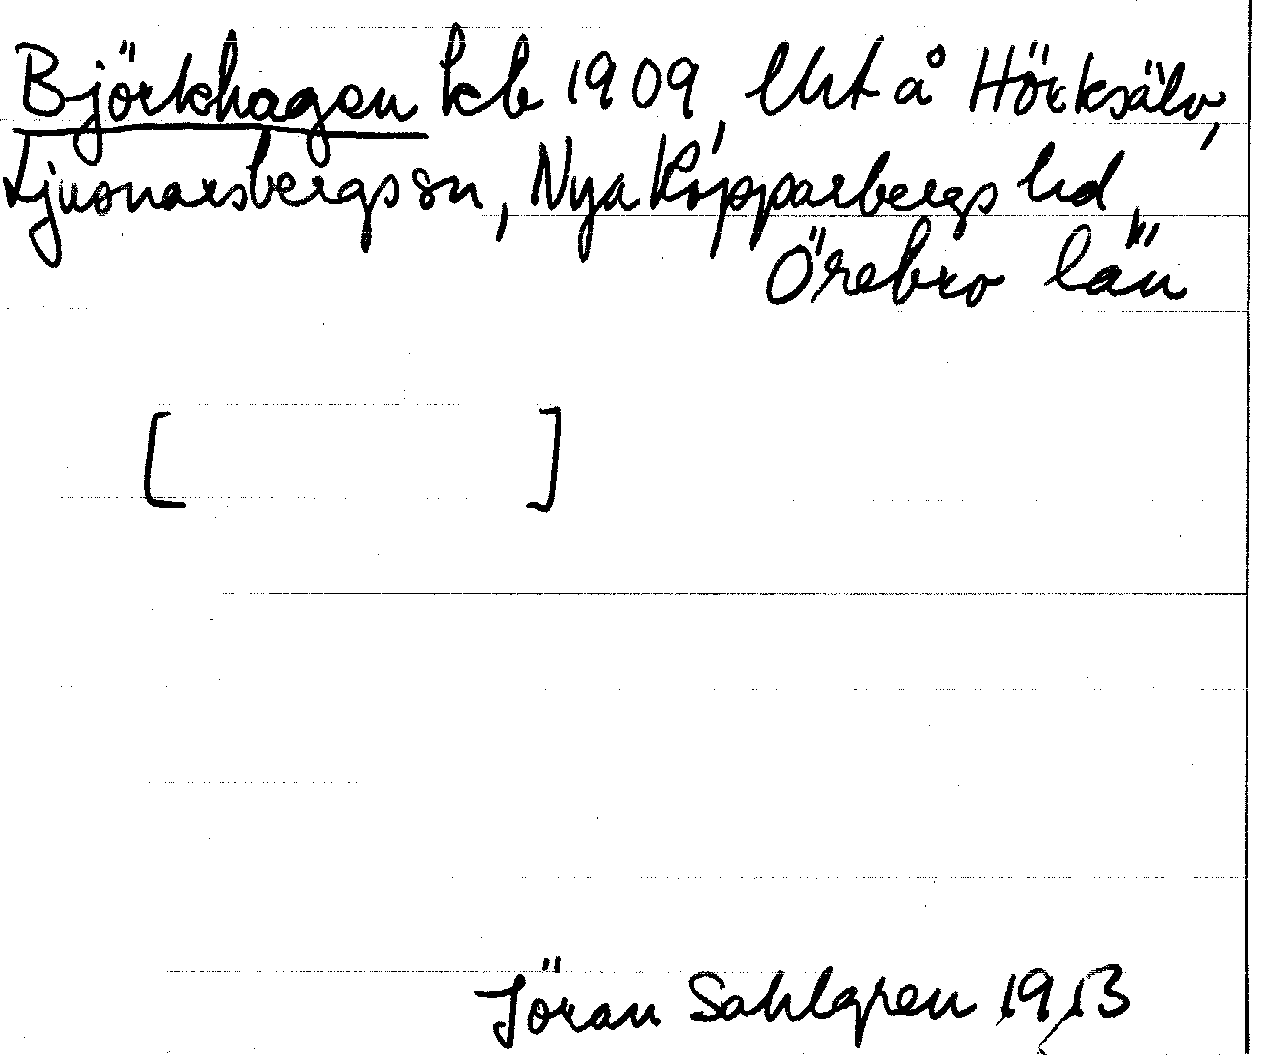 Björkhagen kb 1909, Uut å Hörksälv,
Ljusnarsbergs sn, Nya Kopparbergs hd,
Örebro län
[ ]
Jöran Sahlgren 1913